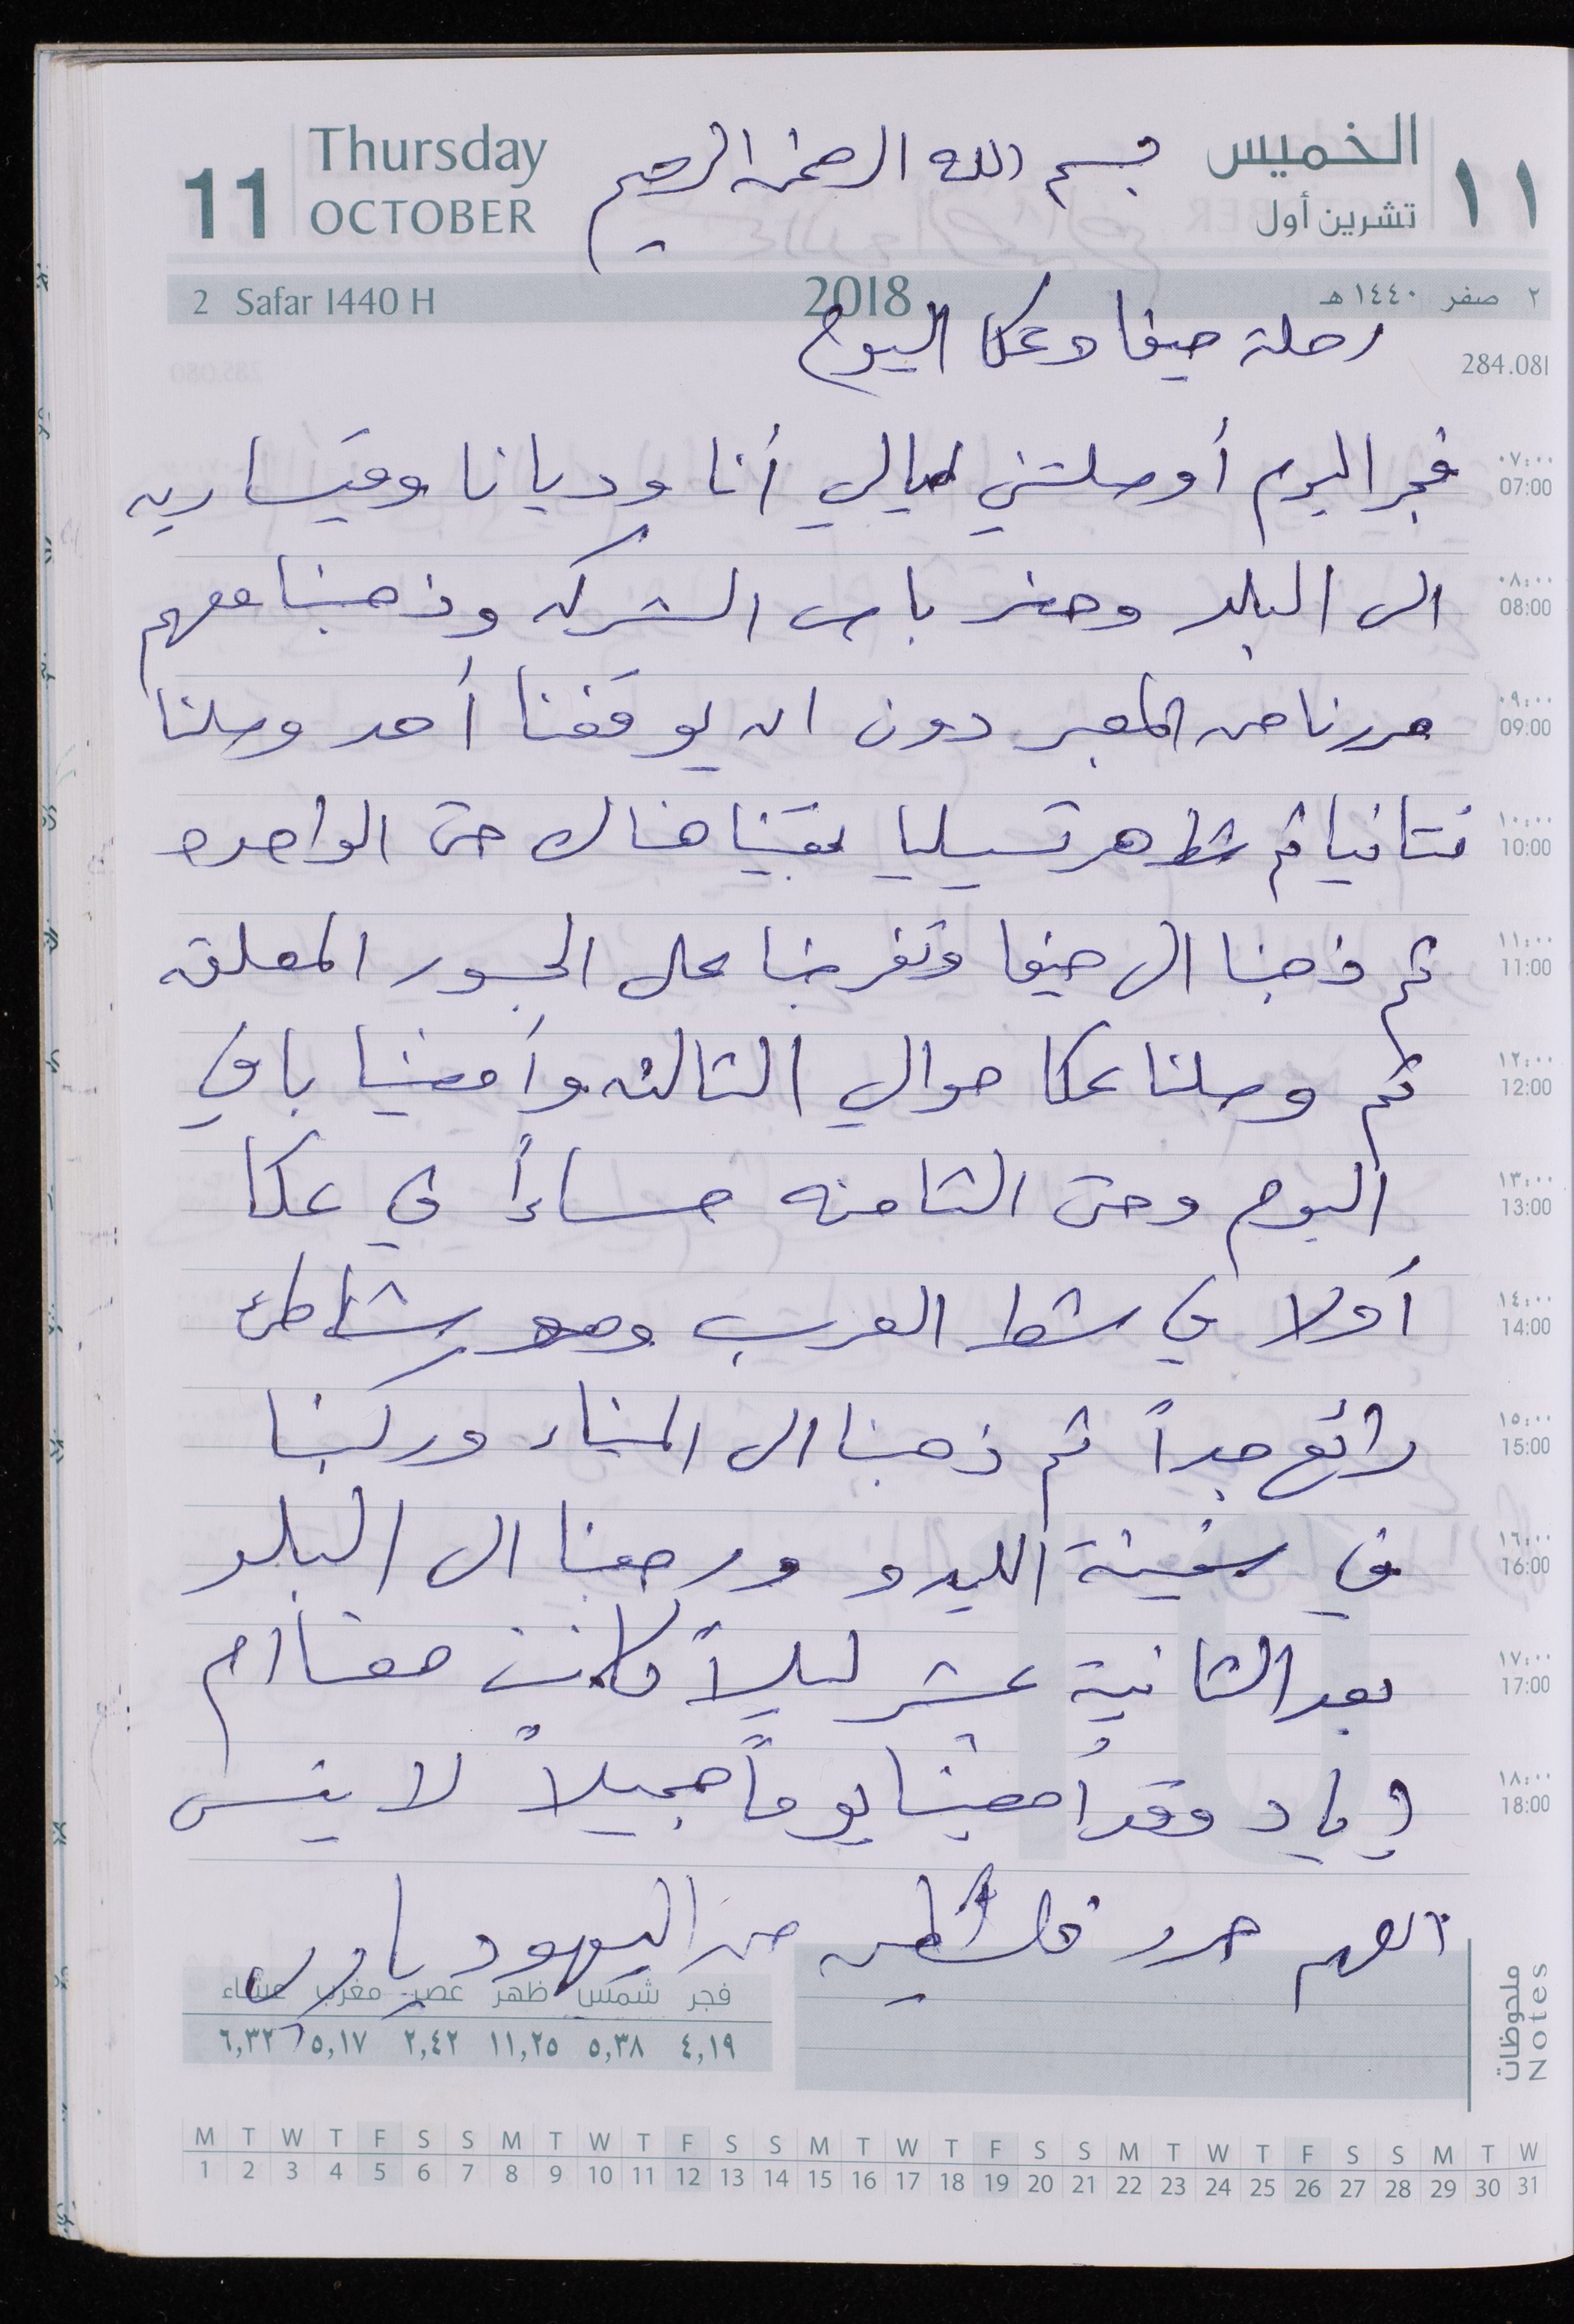 11 Thursday OCTOBER بسم الله الرحمن الرحيم الخميس تشرين أول ١١
2 Safar 1440 H 2018 ٢ صفر ١٤٤٠ هـ
رحلة حيفا وعكا اليوم
284.081
٠٧:٠٠ 07:00 فجر اليوم أوصلتني ليالي أنا وديانا وقيساريه
٠٨:٠٠ 08:00 الى البلد وحضر باص الشركه وذهبنا معهم
٠٩:٠٠ 09:00 مررنا من المعبر دون ان يوقفنا أحد وصلنا
١٠:٠٠ 10:00 نتانيا ثم شط هرتسيليا بقينا هناك حتى الواحده
١١:٠٠ 11:00 ثم ذهبنا الى حيفا وتفرجنا على الجسور المعلقه
١٢:٠٠ 12:00 ثم وصلنا عكا حوالي الثالثه وأمضينا باقي
١٣:٠٠ 13:00 اليوم وحتى الثامنه مساءاً في عكا
١٤:٠٠ 14:00 أولا في شط العرب وهو شاطئ
١٥:٠٠ 15:00 رائع جداً ثم ذهبنا الى الميناء وركبنا
١٦:٠٠ 16:00 في سفينة الليدو ورجعنا الى البلد
١٧:٠٠ 17:00 بعد الثانية عشر ليلاً كانت معنا ام
١٨:٠٠ 18:00 اياد وقد أمضينا يوماً جميلاً لا ينسى
اللهم حرر فلسطين من اليهود يا رب
ملحوظات Notes
فجر شمس ظهر عصر مغرب عشاء
٤,١٩ ٥,٣٨ ١١,٢٥ ٢,٤٢ ٥,١٧ ٦,٣٢
M T W T F S S M T W T F S S M T W T F S S M T W T F S S M T W
1 2 3 4 5 6 7 8 9 10 11 12 13 14 15 16 17 18 19 20 21 22 23 24 25 26 27 28 29 30 31